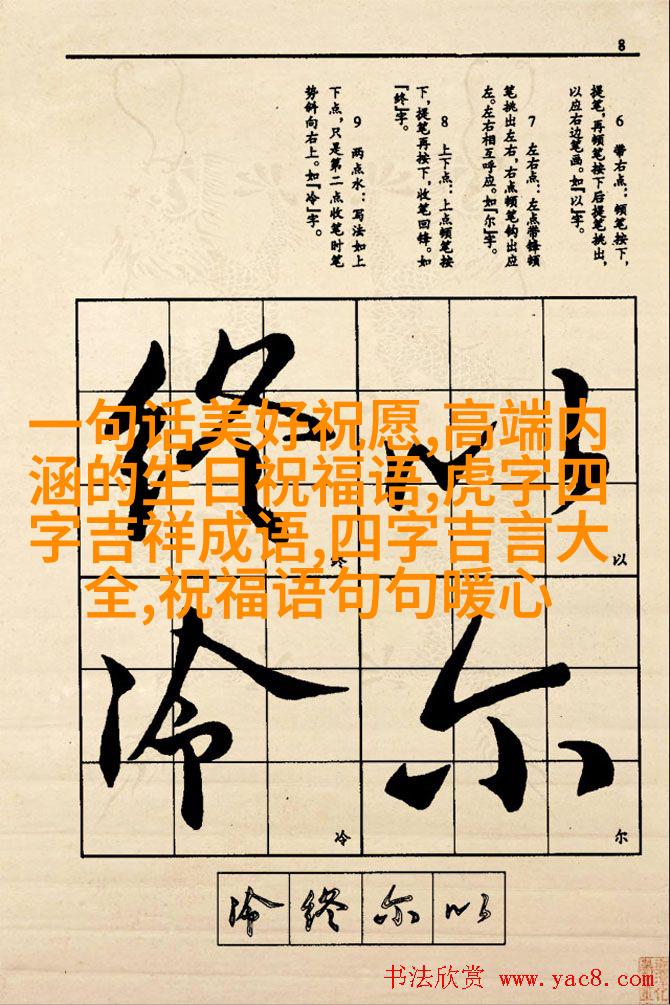 8
6　带右点：顿笔按下，
提笔，再顿笔按下后提笔挑出，
以应右边笔画。如『以』字。
7　左右点：左点带锋顿
笔挑出左右，右点顿笔钩出应
左。左右相互呼应。如『尔』字。
8　上下点：上点顿笔按
下，提笔再按下，收笔回锋。如
『终』字。
9　两点水：写法如上
下点，只是第二点收笔时笔
势斜向右上。如『冷』字。
一句话美好祝愿,高端内
涵的生日祝福语,虎字四
字吉祥成语,四字吉言大
全,祝福语句句暖心
以
终
以
终
尔
冷
尔
冷
冷 终 尔 以
书法欣赏 www.yac8.com